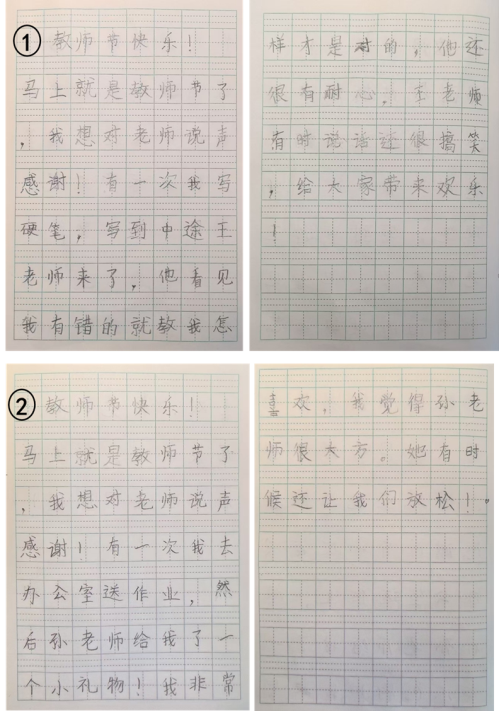 ① 教师节快乐！
马上就是教师节了
，我想对老师说声
感谢！有一次我写
硬笔，写到中途王
老师来了，他看见
我有错的就教我怎
样才是对的，他还
很有耐心。王老师
有时说话还很搞笑
，给大家带来欢乐
！
② 教师节快乐！
马上就是教师节了
，我想对老师说声
感谢！有一次我去
办公室送作业，然
后孙老师给我了一
个小礼物！我非常
喜欢，我觉得孙老
师很大方。她有时
候还让我们放松！。